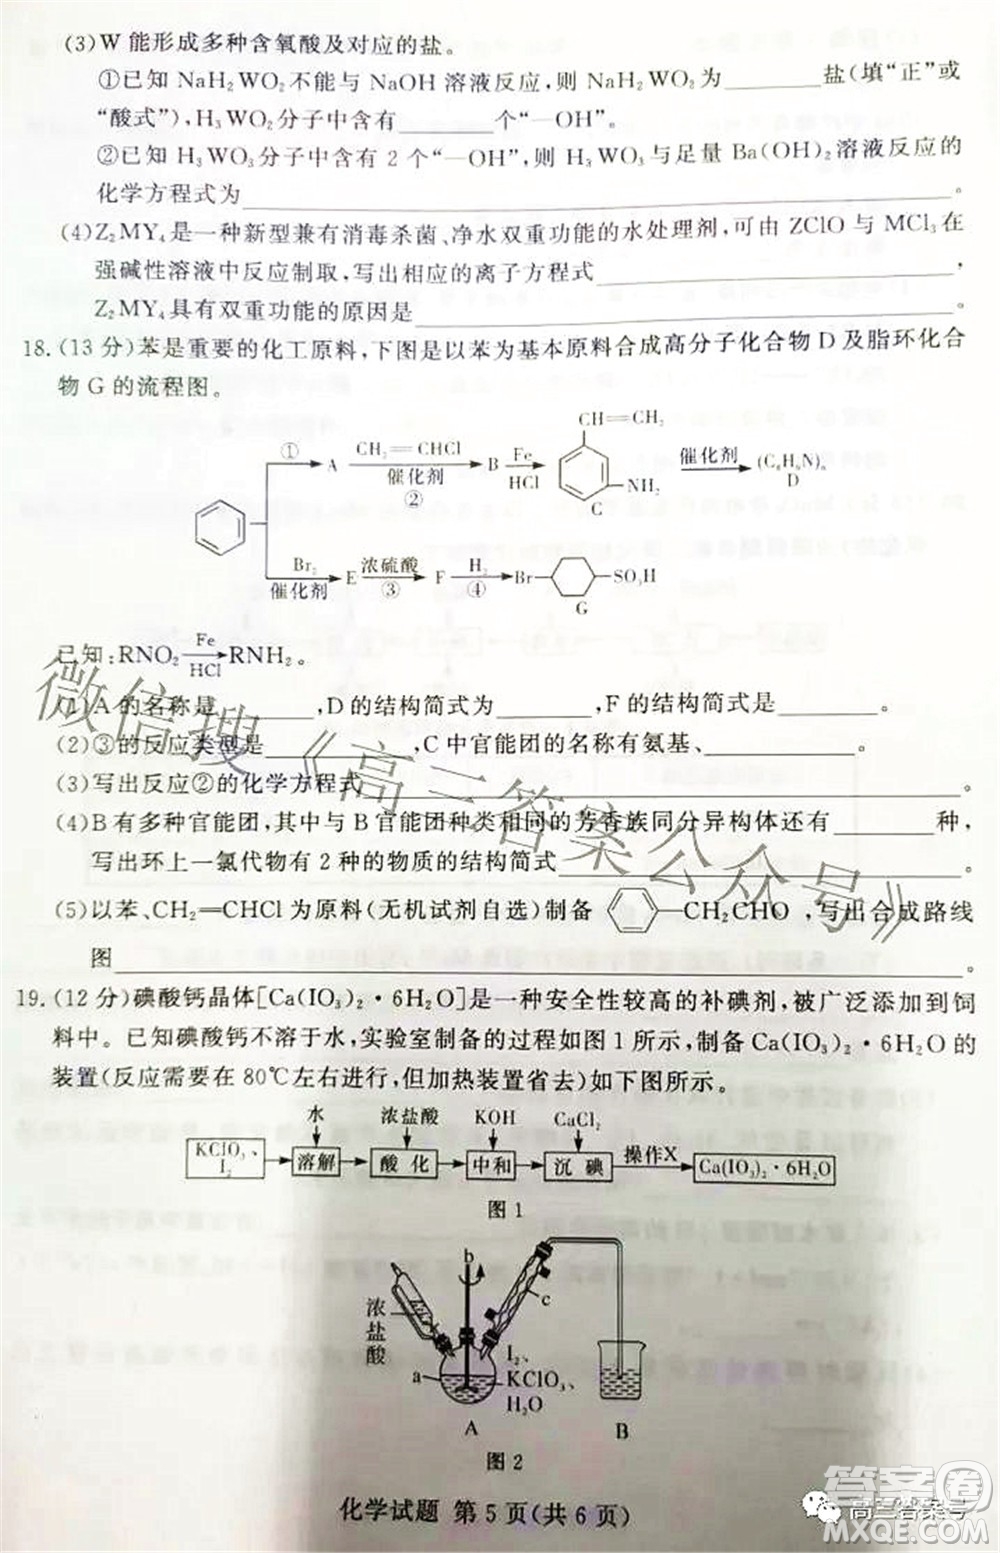 (3)W能形成多种含氧酸及对应的盐。
①已知NaH₂WO₂不能与NaOH溶液反应,则NaH₂WO₂为________盐(填“正”或
“酸式”),H₃WO₂分子中含有________个“—OH”。
②已知H₃WO₃分子中含有2个“—OH”,则H₃WO₃与足量Ba(OH)₂溶液反应的
化学方程式为________________。
(4)Z₂MY₄是一种新型兼有消毒杀菌、净水双重功能的水处理剂,可由ZClO与MCl₃在
强碱性溶液中反应制取,写出相应的离子方程式________________,
Z₂MY₄具有双重功能的原因是________________。
18.(13分)苯是重要的化工原料,下图是以苯为基本原料合成高分子化合物D及脂环化合
物G的流程图。
① A CH₂═CHCl 催化剂 ② B Fe HCl CH═CH₂ NH₂ C 催化剂 (C₈H₉N)ₙ D
Br₂ 催化剂 E 浓硫酸 ③ F H₂ ④ Br SO₃H G
已知:RNO₂ Fe HCl RNH₂。
(1)A的名称是________,D的结构简式为________,F的结构简式是________。
(2)③的反应类型是________,C中官能团的名称有氨基、________。
(3)写出反应②的化学方程式________________。
(4)B有多种官能团,其中与B官能团种类相同的芳香族同分异构体还有________种,
写出环上一氯代物有2种的物质的结构简式________________。
(5)以苯、CH₂═CHCl为原料(无机试剂自选)制备 —CH₂CHO,写出合成路线
图________________
19.(12分)碘酸钙晶体[Ca(IO₃)₂·6H₂O]是一种安全性较高的补碘剂,被广泛添加到饲
料中。已知碘酸钙不溶于水,实验室制备的过程如图1所示,制备Ca(IO₃)₂·6H₂O的
装置(反应需要在80℃左右进行,但加热装置省去)如下图所示。
水 浓盐酸 KOH CaCl₂
KClO₃、I₂ 溶解 酸化 中和 沉碘 操作X Ca(IO₃)₂·6H₂O
图1
b
c
浓盐酸
a
I₂、
KClO₃、
H₂O
A B
图2
化学试题 第5页(共6页)
微信搜《高三答案公众号》
高三答案号
答案圈
MXQE.COM